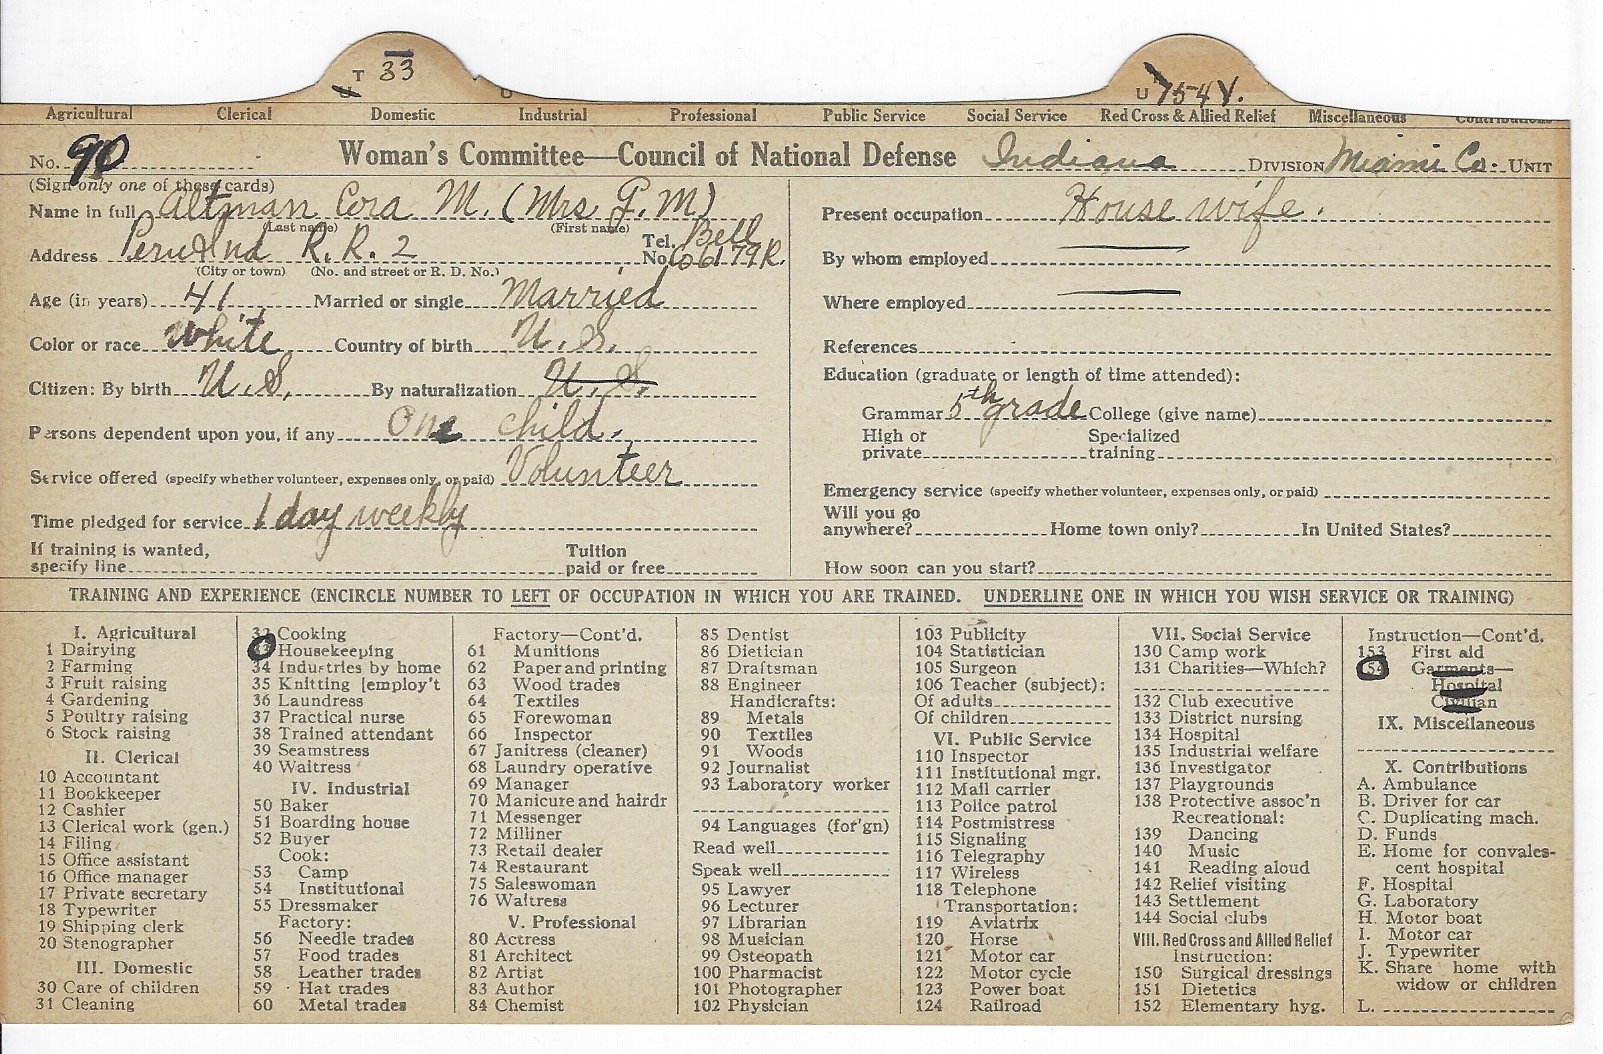 T 33
U 154 V.
Agricultural Clerical Domestic Industrial Professional Public Service Social Service Red Cross & Allied Relief Miscellaneous Contributions
No. 90 Woman's Committee—Council of National Defense Indiana DIVISION Miami Co. UNIT
(Sign only one of these cards)
Name in full Altman Cora M. (Mrs G. M)
(Last name) (First name)
Address Peru Ind R. R. 2 Tel. No. Bell Co 6179R.
(City or town) (No. and street or R. D. No.)
Age (in years) 41 Married or single Married
Color or race White Country of birth U. S.
Citizen: By birth U. S. By naturalization U. S.
Persons dependent upon you, if any One child.
Service offered (specify whether volunteer, expenses only, or paid) Volunteer
Time pledged for service 1 day weekly
If training is wanted, specify line Tuition paid or free
Present occupation House wife.
By whom employed
Where employed
References
Education (graduate or length of time attended):
Grammar 5th grade College (give name)
High or private Specialized training
Emergency service (specify whether volunteer, expenses only, or paid)
Will you go anywhere? Home town only? In United States?
How soon can you start?
TRAINING AND EXPERIENCE (ENCIRCLE NUMBER TO LEFT OF OCCUPATION IN WHICH YOU ARE TRAINED. UNDERLINE ONE IN WHICH YOU WISH SERVICE OR TRAINING)
I. Agricultural
1 Dairying
2 Farming
3 Fruit raising
4 Gardening
5 Poultry raising
6 Stock raising
II. Clerical
10 Accountant
11 Bookkeeper
12 Cashier
13 Clerical work (gen.)
14 Filing
15 Office assistant
16 Office manager
17 Private secretary
18 Typewriter
19 Shipping clerk
20 Stenographer
III. Domestic
30 Care of children
31 Cleaning
32 Cooking
33 Housekeeping
34 Industries by home
35 Knitting [employ't
36 Laundress
37 Practical nurse
38 Trained attendant
39 Seamstress
40 Waitress
IV. Industrial
50 Baker
51 Boarding house
52 Buyer
Cook:
53 Camp
54 Institutional
55 Dressmaker
Factory:
56 Needle trades
57 Food trades
58 Leather trades
59 Hat trades
60 Metal trades
Factory—Cont'd.
61 Munitions
62 Paper and printing
63 Wood trades
64 Textiles
65 Forewoman
66 Inspector
67 Janitress (cleaner)
68 Laundry operative
69 Manager
70 Manicure and hairdr
71 Messenger
72 Milliner
73 Retail dealer
74 Restaurant
75 Saleswoman
76 Waitress
V. Professional
80 Actress
81 Architect
82 Artist
83 Author
84 Chemist
85 Dentist
86 Dietician
87 Draftsman
88 Engineer
Handicrafts:
89 Metals
90 Textiles
91 Woods
92 Journalist
93 Laboratory worker
94 Languages (for'gn)
Read well
Speak well
95 Lawyer
96 Lecturer
97 Librarian
98 Musician
99 Osteopath
100 Pharmacist
101 Photographer
102 Physician
103 Publicity
104 Statistician
105 Surgeon
106 Teacher (subject):
Of adults
Of children
VI. Public Service
110 Inspector
111 Institutional mgr.
112 Mail carrier
113 Police patrol
114 Postmistress
115 Signaling
116 Telegraphy
117 Wireless
118 Telephone
Transportation:
119 Aviatrix
120 Horse
121 Motor car
122 Motor cycle
123 Power boat
124 Railroad
VII. Social Service
130 Camp work
131 Charities—Which?
132 Club executive
133 District nursing
134 Hospital
135 Industrial welfare
136 Investigator
137 Playgrounds
138 Protective assoc'n
Recreational:
139 Dancing
140 Music
141 Reading aloud
142 Relief visiting
143 Settlement
144 Social clubs
VIII. Red Cross and Allied Relief
Instruction:
150 Surgical dressings
151 Dietetics
152 Elementary hyg.
Instruction—Cont'd.
153 First aid
154 Garments—
Hospital
Civilian
IX. Miscellaneous
X. Contributions
A. Ambulance
B. Driver for car
C. Duplicating mach.
D. Funds
E. Home for convales-
cent hospital
F. Hospital
G. Laboratory
H. Motor boat
I. Motor car
J. Typewriter
K. Share home with
widow or children
L.